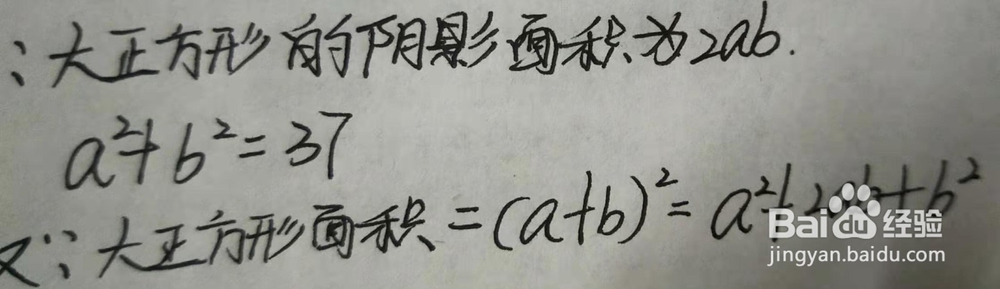 ∵大正方形的阴影面积为2ab.
a²+b²=37
又∵大正方形面积=(a+b)²=a²+2ab+b²
Baidu经验
jingyan.baidu.com